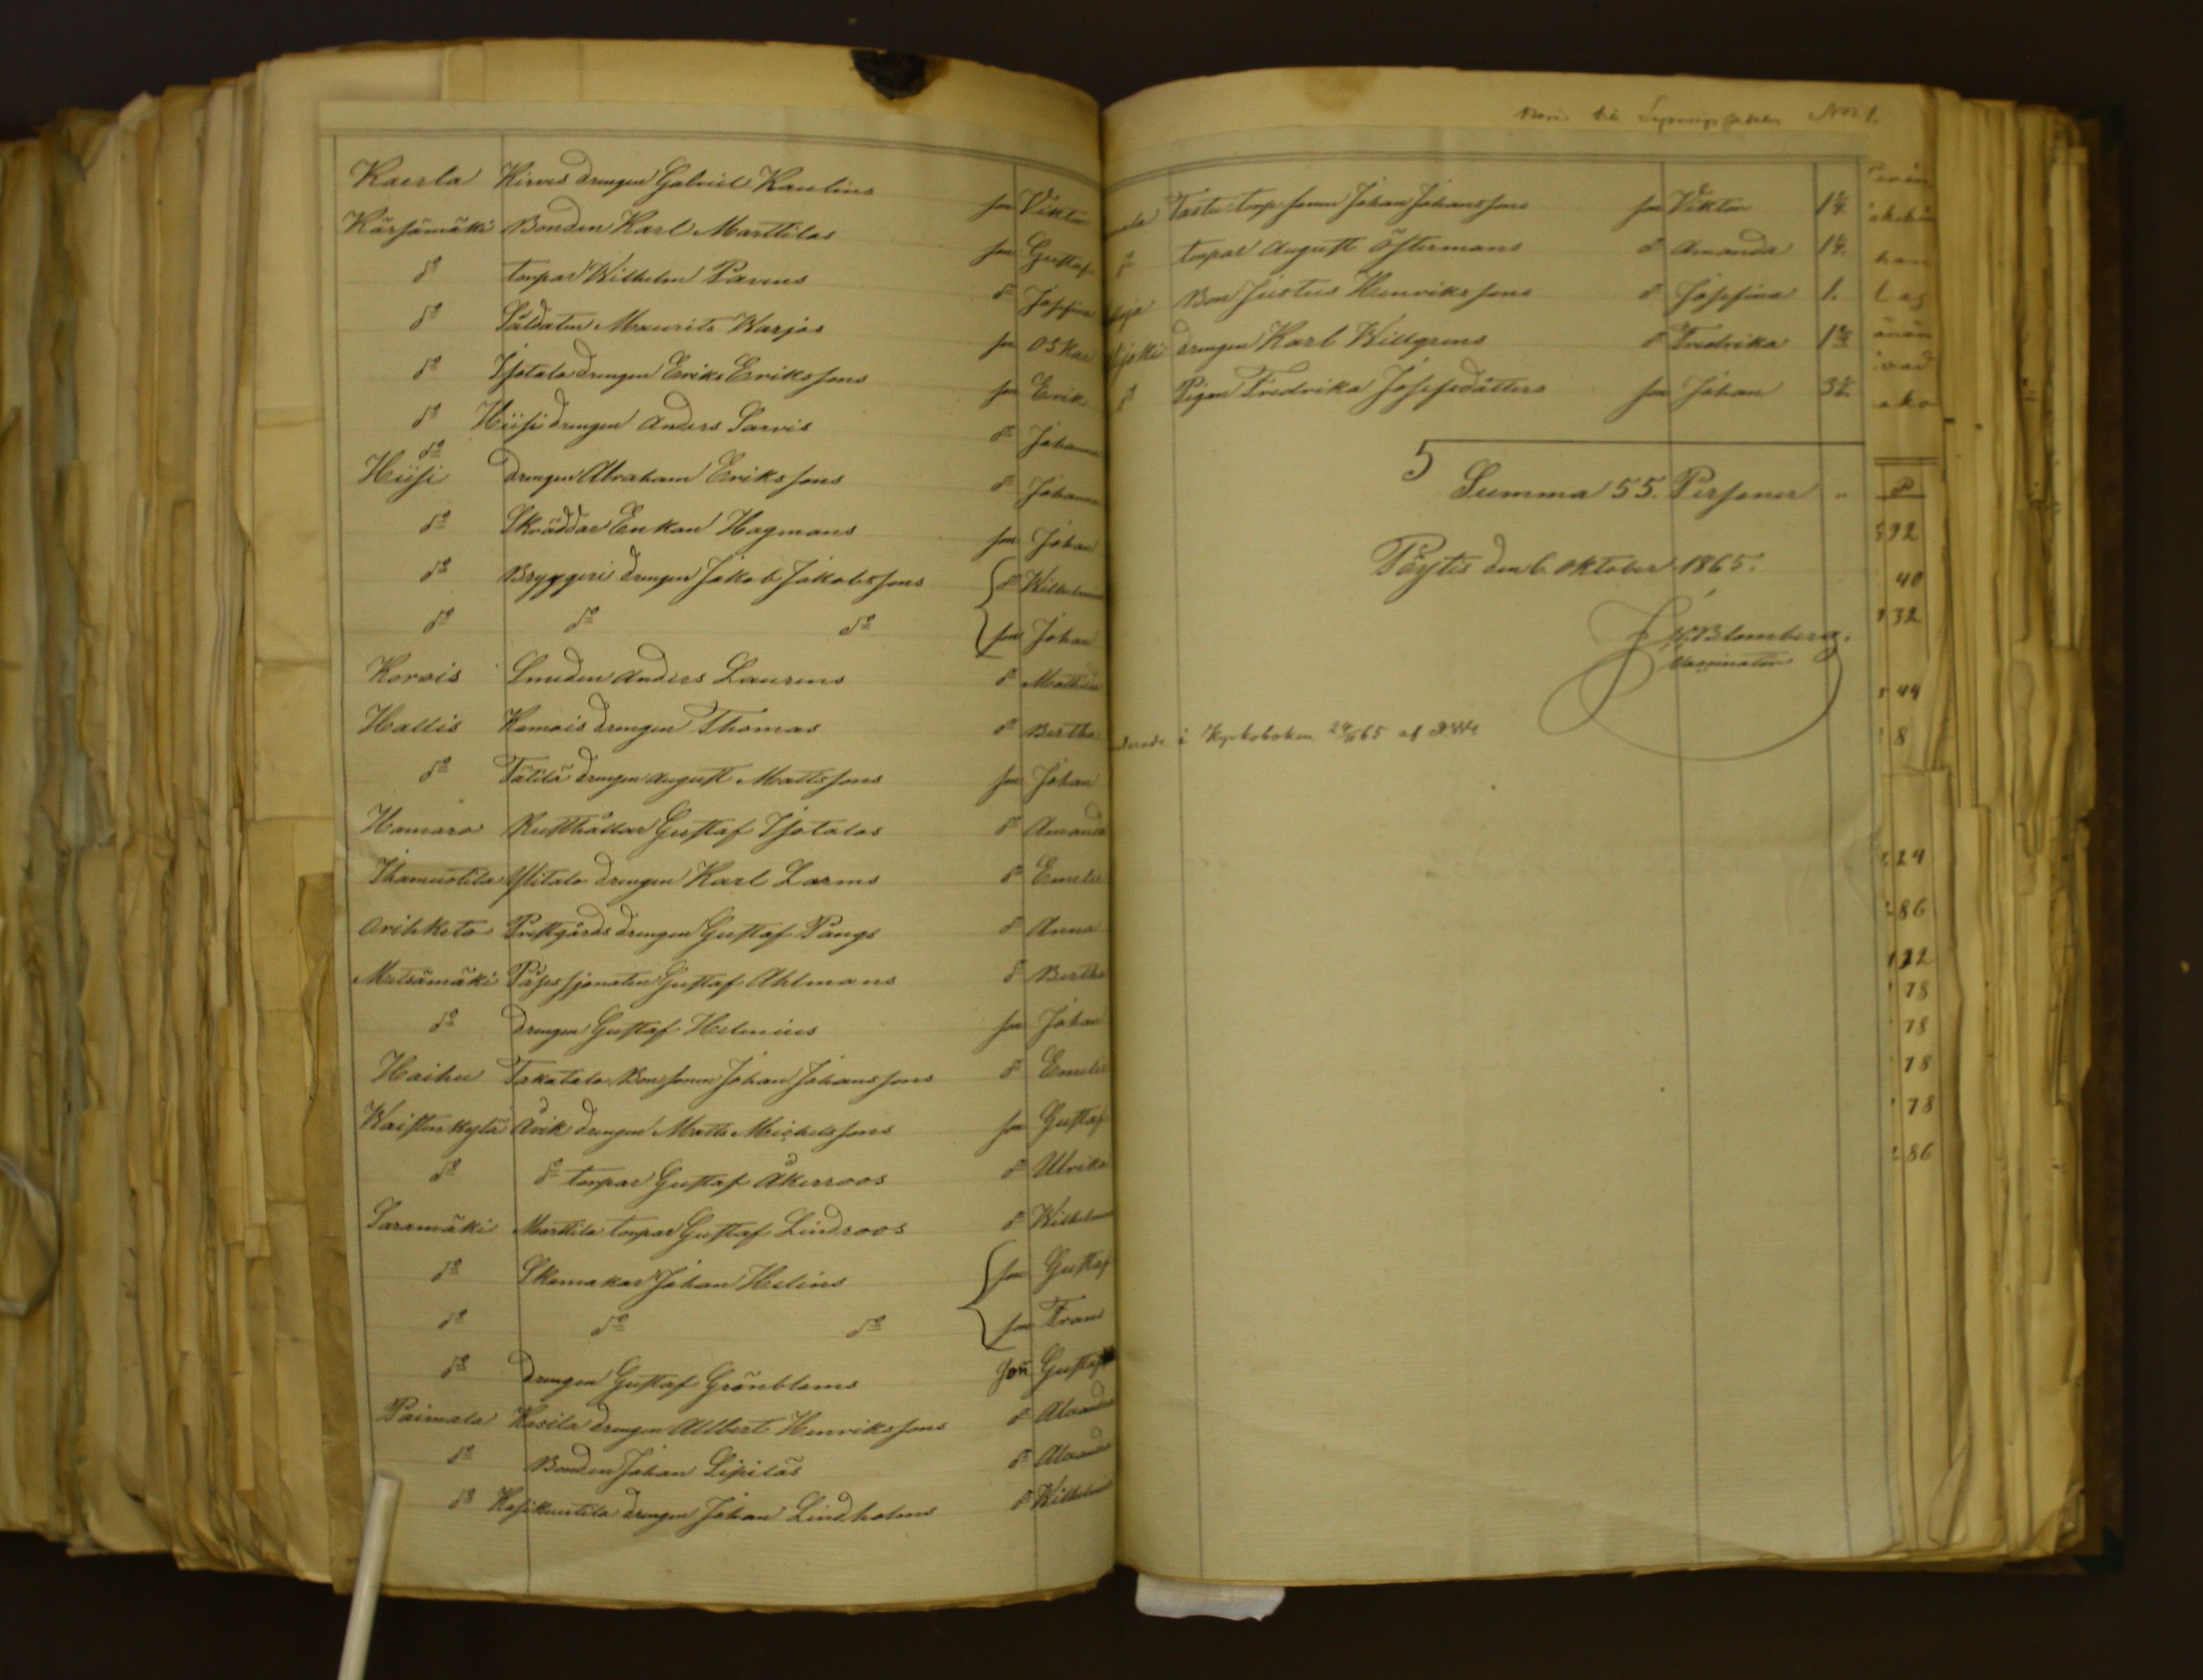 Kaerla Kirves drengen Gabriel Kaulins son Viktor
Kärsämäki Bonden Karl Marttilas son Gustaf
do torpar Wilhelm Parms dr Josefina
do Såldaten Maurits Warjos son Oskar
do Isotalo drengen Eriks Erikssons son Erik
do Hiisi drengen Anders Sarvis dr Johanna
do
Hiisi drengen Abraham Erikssons dr Johanna
do Skräddar Enkan Hagmans son Johan
do Bryggeri drengen Jakob Jakobssons dr Wilhelmina
do do do son Johan
Korois Smeden Anders Laurens dr Mathilda
Hallis Komois drengen Thomas dr Bertha
do Tätilä drengen August Mattssons son Johan
Hamaro Rusthållar Gustaf Isotalos dr Amanda
Ihamuotila Ylitalo drengen Karl Larms dr Emelie
Orihketo Prestgårds drengen Gustaf Pangs dr Anna
Metsämäki Påsessjonaten Gustaf Ahlmans dr Bertha
do drengen Gustaf Helenius son Johan
Haihu Takatalo Bonsonen Johan Johanssons dr Emelie
Waistenkylä Åvik drengen Matts Michelssons son Gustaf
do do torpar Gustaf Åkerroos dr Ulrika
Saramäki Marttila torpar Gustaf Lindroos dr Wilhelm
do Skomakar Johan Helins son Gustaf
do do do son Frans
do drengen Gustaf Grönbloms son Gustaf
Paimala Kasila drengen Allbert Henrikssons dr
do Bonden Johan Sipiläs dr
do drengen Johan Lindholms dr Wilhelmin
No 1.
Tastu torp sonen Johan Johanssons son Viktor 1
do torpar August Östermans dr Amanda 1
Bon Justus Henrikssons dr Josefina 1.
joki drengen Karl Willgrens dr Fredrika 1
do Pigan Fredrika Josefsdåtters son Johan 3
5
Summa 55. Personer
Pöytis den 6. Oktober 1865.
J. W. Blomberg.
Vaccinatör
i Kyrkoboken 65 af
32
40
32
44
8
24
86
78
78
78
78
86